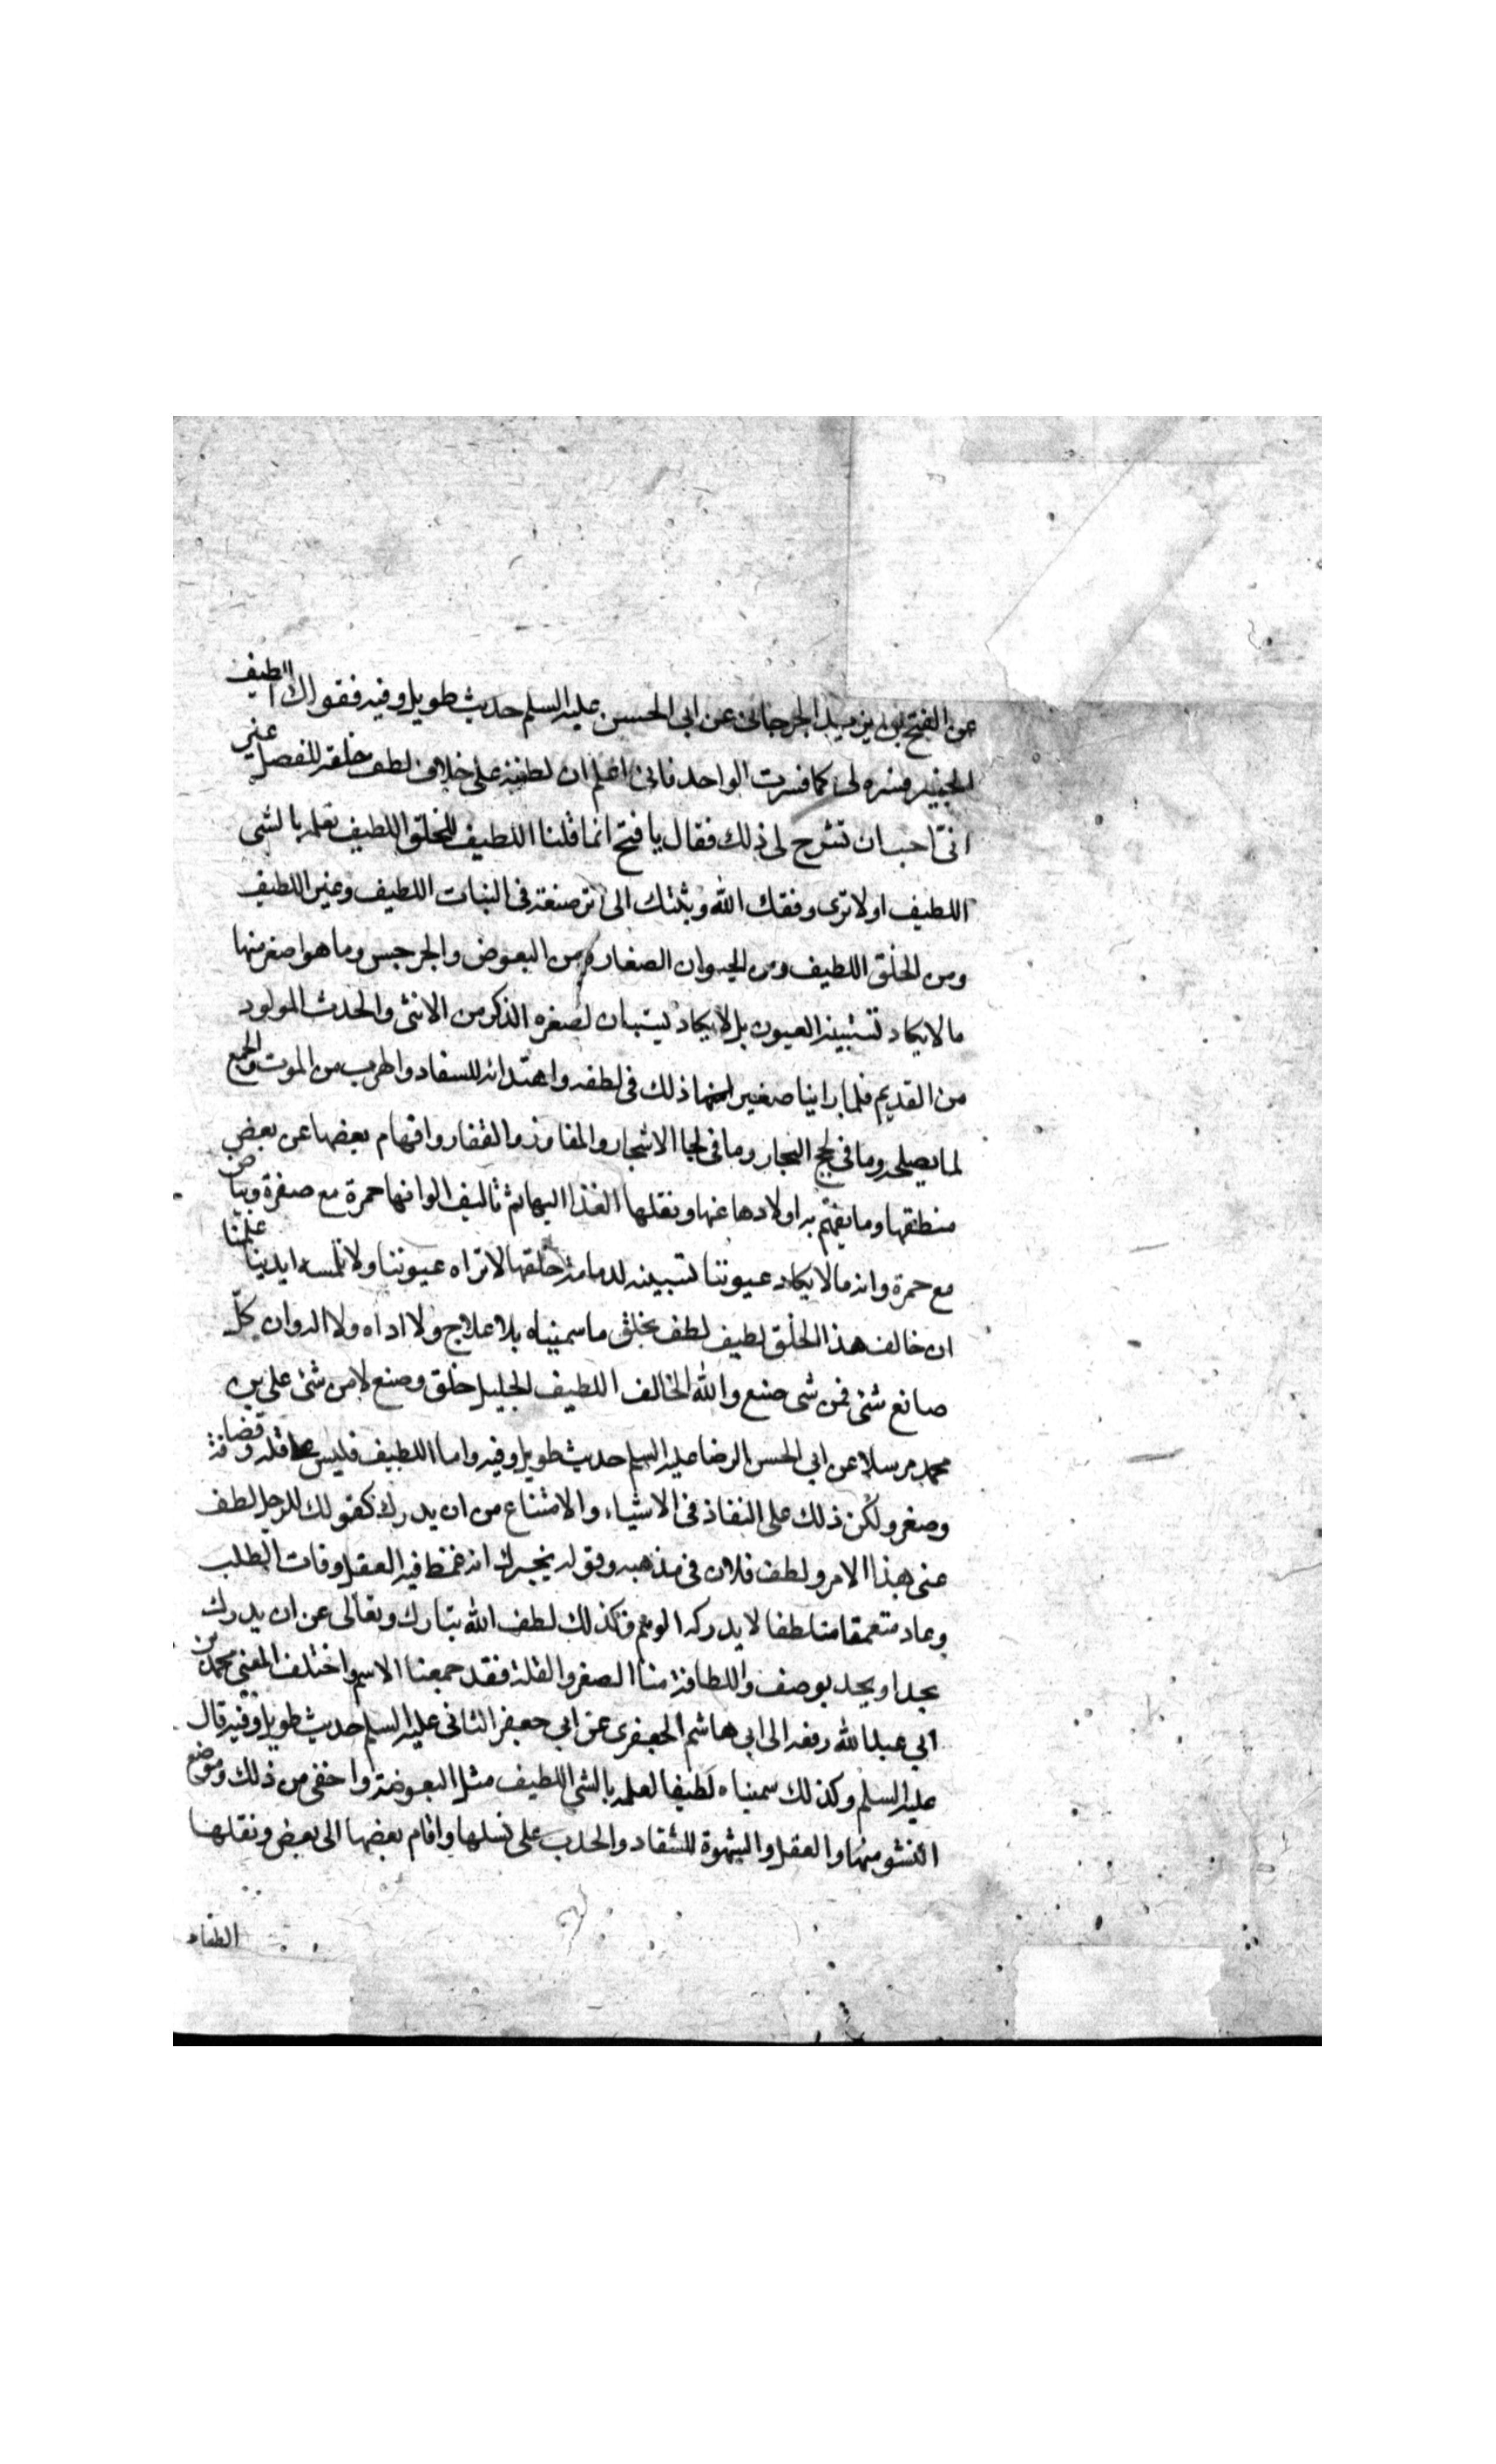 عن الفتح بن يزيد الجرجانى عن ابى الحسن عليه السلم حديث طويل وفيه فقولك اللطيف
الخبير فسره لى كما فسرت الواحد فانى اعلم ان لطفه على خلاف لطف خلقه للفصل غير
انى احب ان تشرح لى ذلك فقال يا فتح انما قلنا اللطيف للخلق اللطيف لعلمه بالشى
اللطيف اولا ترى وفقك الله وثبتك الى اثر صنعه فى النبات اللطيف وغير اللطيف
ومن الخلق اللطيف ومن الحيوان الصغار ومن البعوض والجرجس وما هو اصغر منها
ما لا يكاد تستبينه العيون بل لا يكاد يستبان لصغره الذكر من الانثى والحدث المولود
من القديم فلما راينا صغير ذلك فى لطفه واهتدائه للسفاد والهرب من الموت والجمع
لما يصلحه وما فى لجج البحار وما فى لحا الاشجار والمفاوز والقفار وافهام بعضها عن بعض
منطقها وما يفهم به اولادها عنها ونقلها الغذا اليها ثم تاليف الوانها حمرة مع صفرة وبياض
مع حمرة وانه ما لا يكاد عيوننا تستبينه لدمامة خلقها لا تراه عيوننا ولا تلمسه ايدينا علمنا
ان خالف هذا الخلق لطيف لطف بخلق ما سميناه بلا علاج ولا اداه ولا اله وان كل
صانع شئ فمن شى صنع والله الخالف اللطيف الجليل خلق وصنع لا من شئ على بن
محمد مرسلا عن ابى الحسن الرضا عليه السلم حديث طويل وفيه واما اللطيف فليس على قله وقضافة
وصغر ولكن ذلك على النفاذ فى الاشياء والامتناع من ان يدرك كقولك للرجل لطف
عنى هذا الامر ولطف فلان فى مذهبه وقوله يخبرك انه غمض فيه العقل وفات الطلب
وعاد متعمقا متلطفا لا يدركه الوهم فكذلك لطف الله تبارك وتعالى عن ان يدرك
بحد او يحد بوصف واللطافة منا الصغر والقلة فقد جمعنا الاسم واختلف المعنى محمد بن
ابى عبد الله رفعه الى ابى هاشم الجعفرى عن ابى جعفر الثانى عليه السلم حديث طويل وفيه قال
عليه السلم وكذلك سميناه لطيفا لعلمه بالشى اللطيف مثل البعوضة واخفى من ذلك وموضع
النشو منها والعقل والشهوة للسفاد والحدب على نسلها واقام بعضها الى بعض ونقلها
الطعام